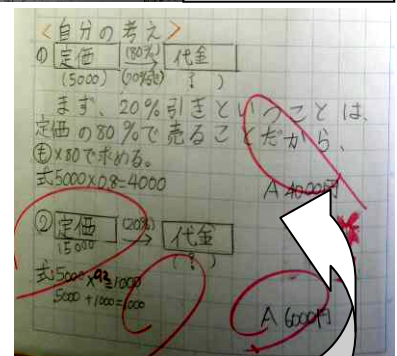 <自分の考え>
① 定価 (80%) → 代金
(5000) (20%引き) ( ? )
まず、20%引きということは、
定価の80%で売ることだから、
㋲×80で求める。
式5000×0.8=4000
A 4000円
② 定価 (20%) → 代金
(5000) ( ? )
式5000×0.2=1000
5000+1000=6000
A 6000円